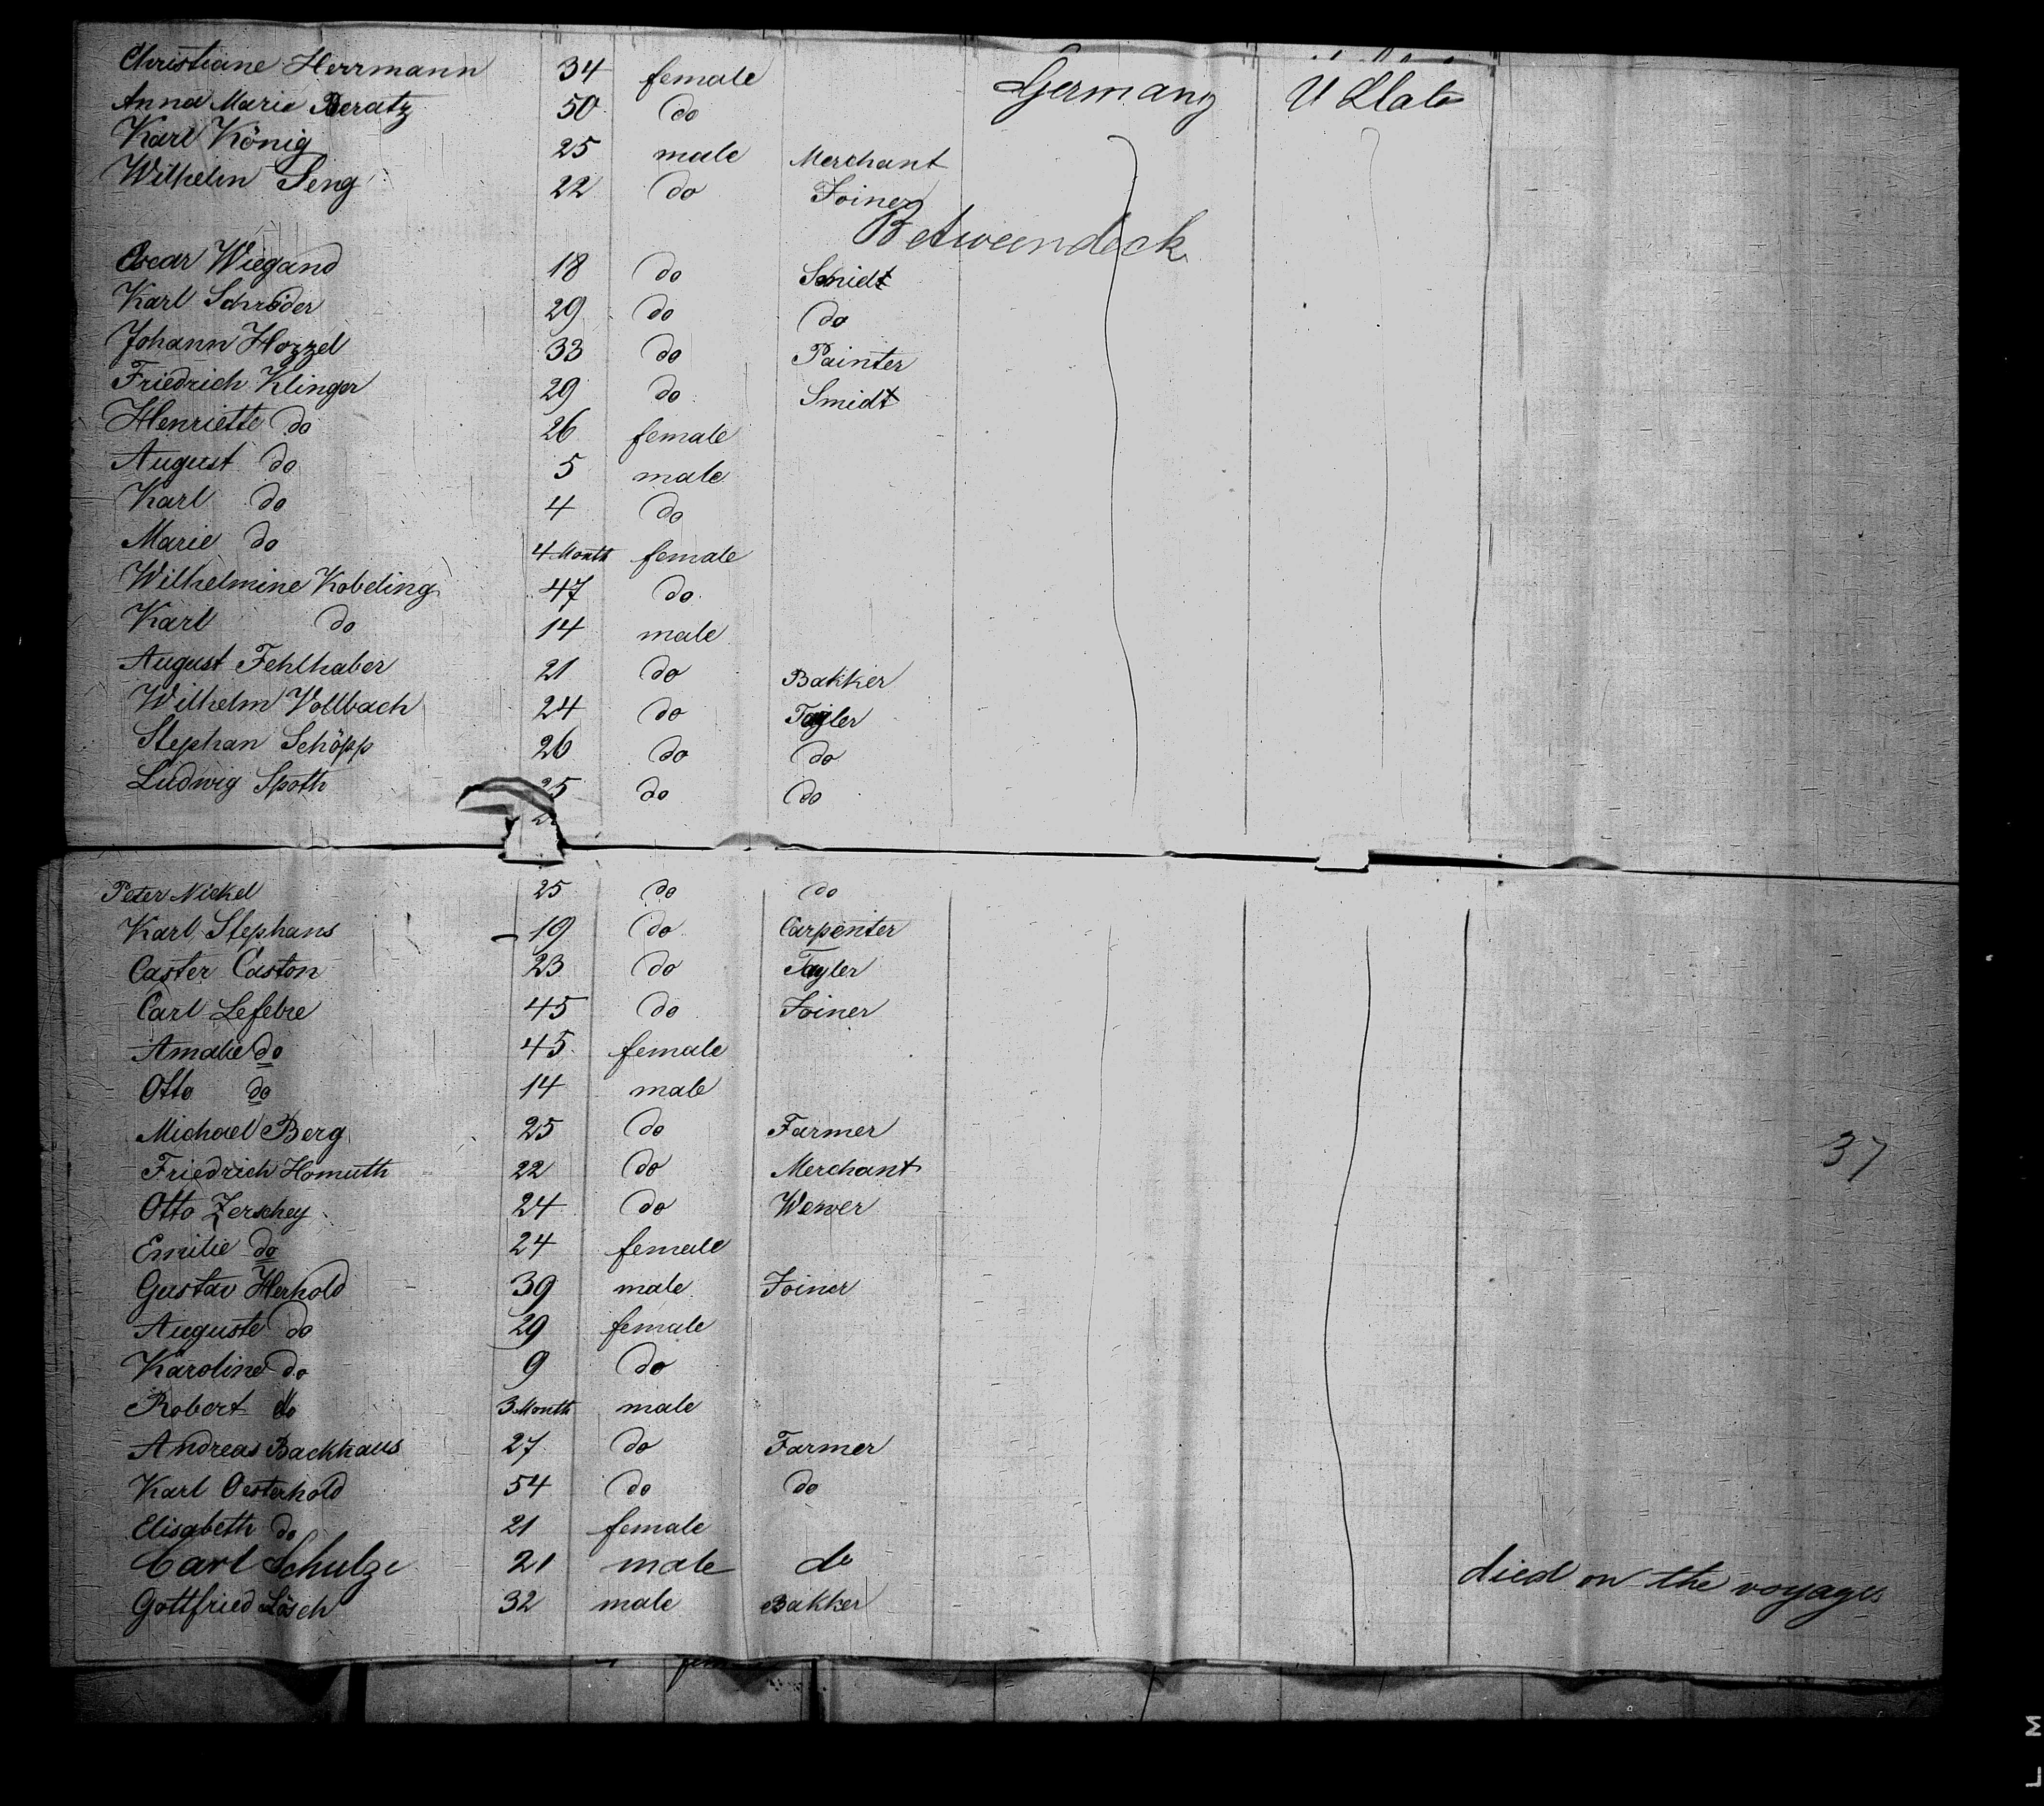 Christiane Herrmann 34 female Germany U States
Anna Marie Beratz 50 do
Karl König 25 male Merchant
Wilhelm Seng 22 do Joiner
Betweendeck
Oscar Wiegand 18 do Smidt
Karl Schröder 29 do do
Johann Hozzel 33 do Painter
Friedrich Klinger 29 do Smidt
Henriette do 26 female
August do 5 male
Karl do 4 do
Marie do 4 Month female
Wilhelmine Kobeling 47 do
Karl do 14 male
August Fehlhaber 21 do Bakker
Wilhelm Vollbach 24 do Tayler
Stephan Schöpp 26 do do
Ludwig Spoth 25 do do
Peter Nickel 25 do do
Karl Stephans 19 do Carpenter
Caster Caston 23 do Tayler
Carl Lefebre 45 do Joiner
Amalie do 45 female
Otto do 14 male
Michael Berg 25 do Farmer
37
Friedrich Homuth 22 do Merchant
Otto Zerschey 24 do Wewer
Emilie do 24 female
Gustav Herhold 39 male Joiner
Auguste do 29 female
Karoline do 9 do
Robert do 3 Month male
Andreas Backhaus 27 do Farmer
Karl Oesterhold 54 do do
Elisabeth do 21 female
Carl Schulze 21 male do died on the voyages
Gottfried Lösch 32 male Bakker
L M